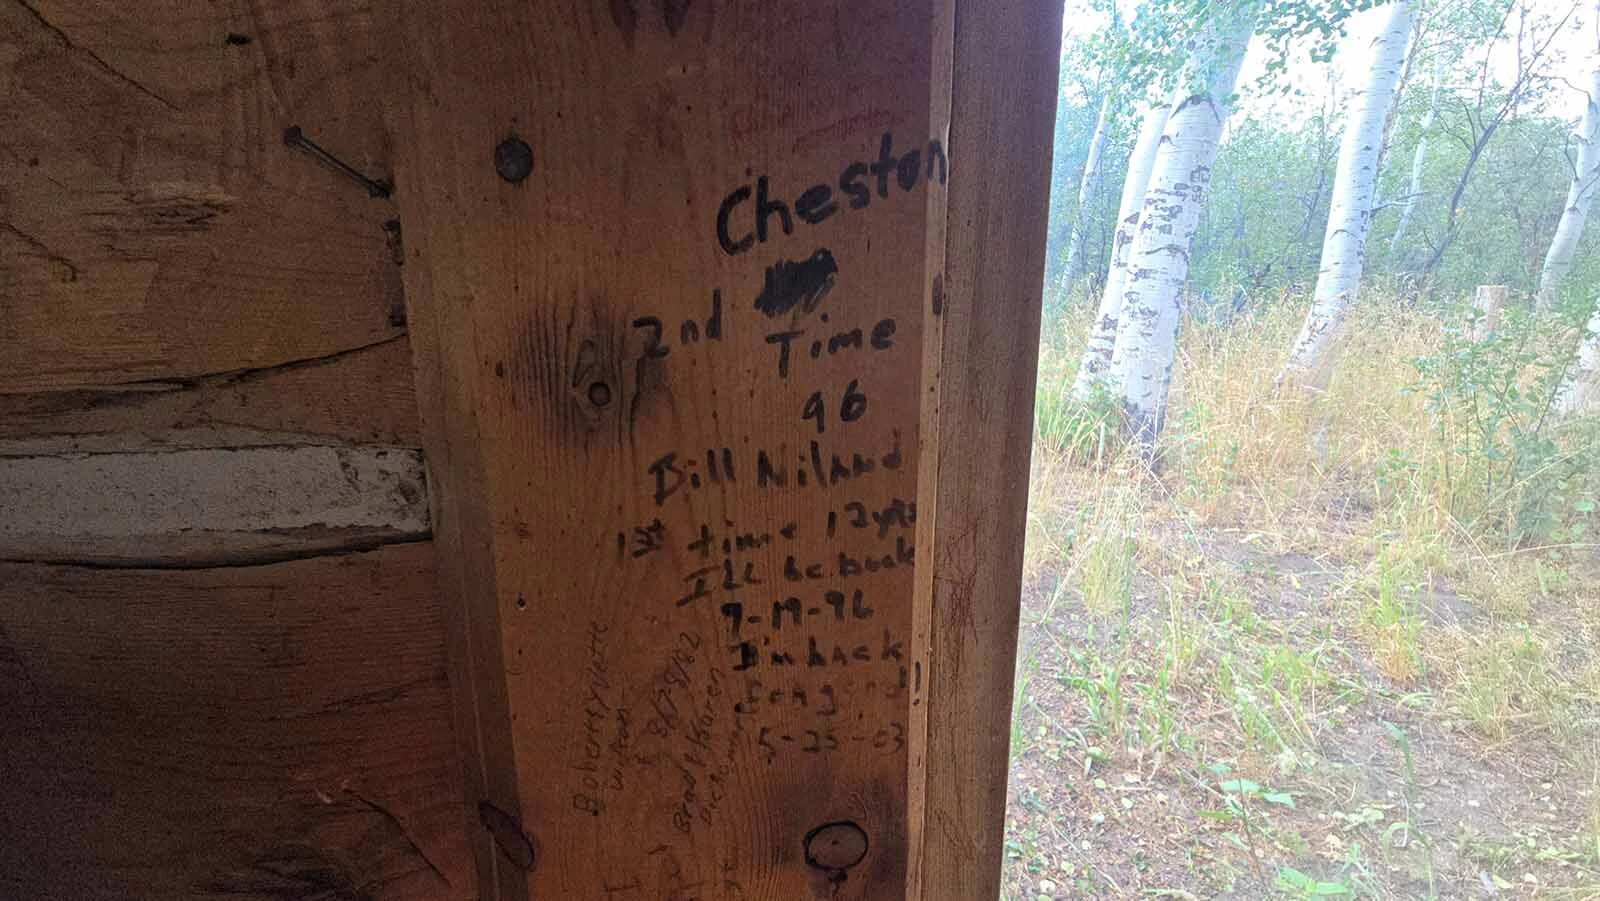 Cheston
2nd Time
96
Bill Niland
1st time 12 yrs
I'll be back
9-19-96
I'm back
5-25-03
8/29/82
Brad & Karen